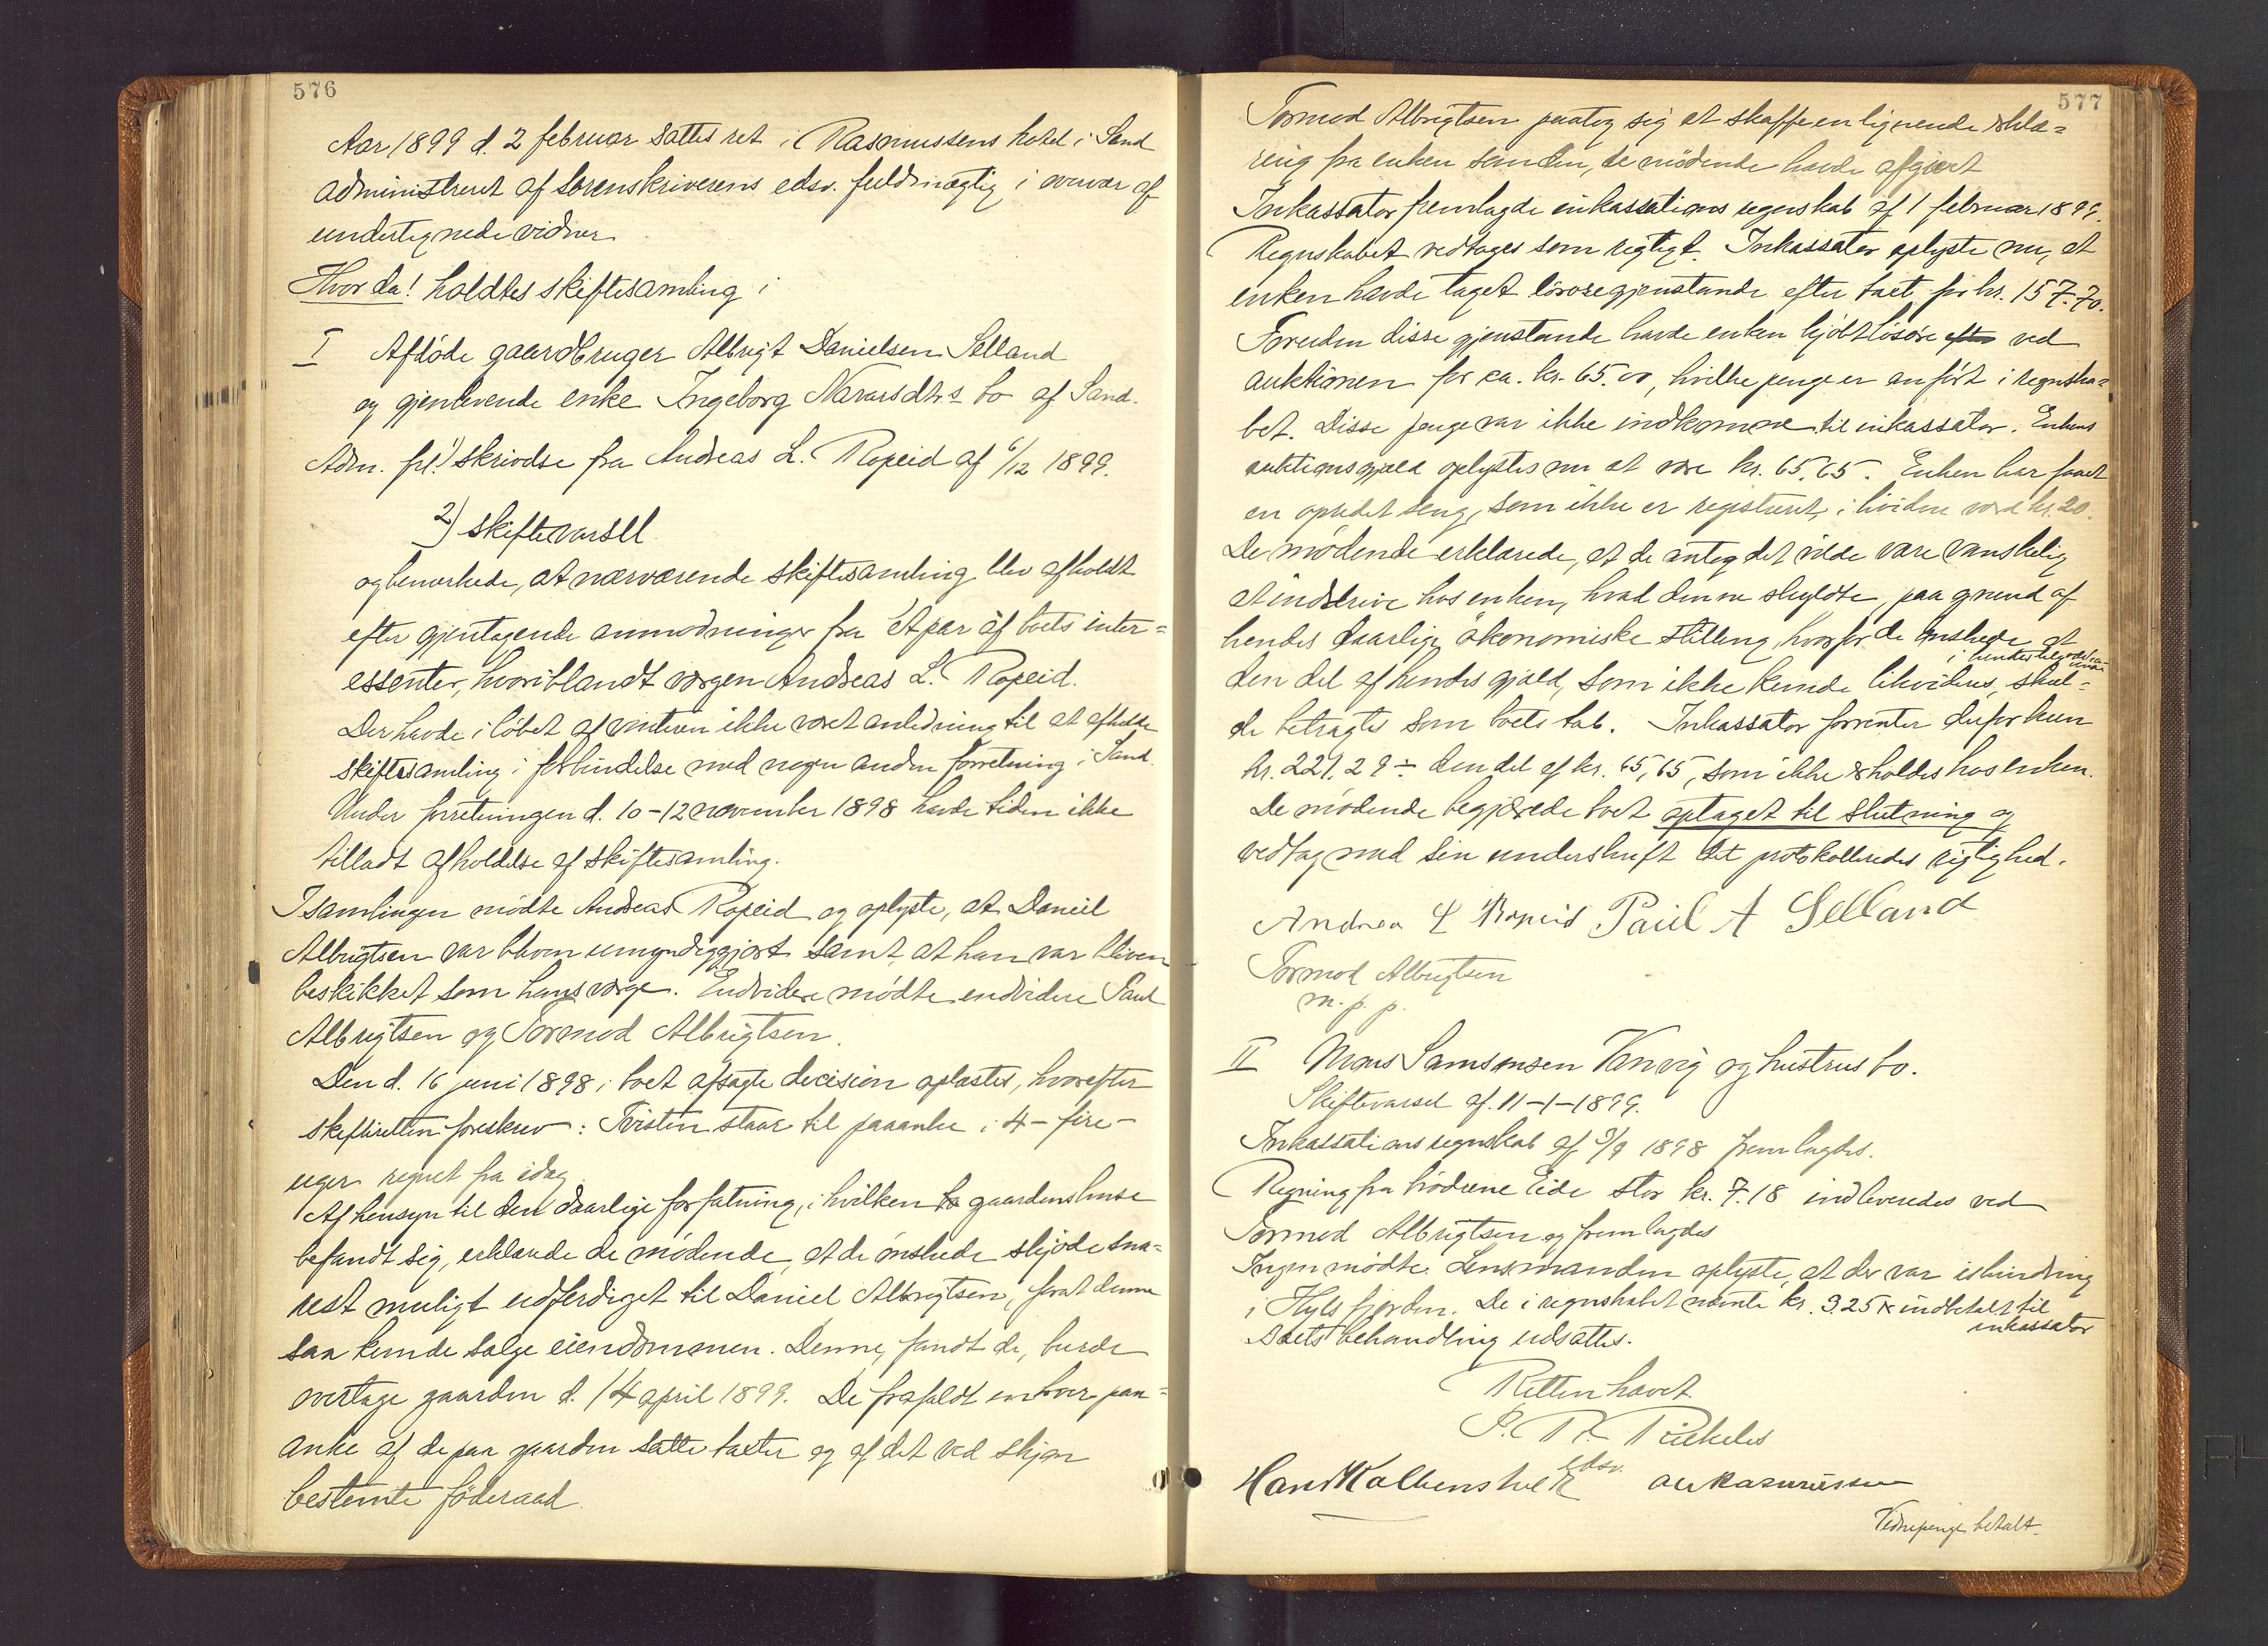 576
Aar 1899 d. 2 februar sattes ret i Rasmussens hotel i Sand
administreret af sorenskriverens edsv. fuldmægtig i overvær af
undertegnede vidner
Hvor da! holdtes skiftesamling i
I Afdøde gaardbruger Albrigt Danielsen Selland
og gjenlevende enke Ingeborg Navarsdtrs bo af Sand.
Adm. frl. 1) skrivelse fra Andreas L. Ropeid af 6/12 1899.
2) skiftevarsel
og bemærkede, at nærværende skiftesamling blev afholdt
efter gjentagende anmodninger fra et par af boets inter=
essenter, hvoriblandt værgen Andreas L. Ropeid.
Der havde i løbet af vinteren ikke været anledning til at afholde
skiftesamling i forbindelse med nogen anden forretning i Sand.
Under forretningen d. 10-12 november 1898 havde tiden ikke
tilladt afholdelse af skiftesamling.
I samlingen mødte Andreas Ropeid og oplyste, at Daniel
Albrigtsen var bleven umyndiggjort samt at han var bleven
beskikket som hans værge. Endvidere mødte endvidere Paul
Albrigtsen og Tormod Albrigtsen.
Den d. 16 juni 1898 i boet afsagte decision oplæstes, hvorefter
skifteretten foreskrev: Tvisten staar til paaanke i 4 - fire -
uger regnet fra idag
Af hensyn til den daarlige forfatning, i hvilken gaardens huse
befandt sig, erklærede de mødende, at de ønskede skjøde sna=
rest muligt udferdiget til Daniel Albrigtsen, forat denne
saa kunde sælge eiendommen. Denne, fandt de, burde
overtage gaarden d. 14 april 1899. De frafaldt enhver paa=
anke af de paa gaarden satte takster og af det ved skjøn
bestemte føderaad.
577
Tormod Albrigtsen paatog sig at skaffe en lignende erklæ=
ring fra enken som den, de mødende havde afgivet
Inkassator fremlagde inkassations regnskab af 1 februar 1899.
Regnskabet vedtages som rigtigt. Inkassator oplyste nu, at
enken havde taget løsøregjenstande efter taxt for kr. 157.70.
Foruden disse gjenstande havde enken kjøbt løsøre efter ved
auktionen for ca. kr. 65.00, hvilke penge er anført i regnska=
bet. Disse penge var ikke indkomne til inkassator. Enkens
auktionsgjæld oplystes nu at være kr. 65,65. Enken har faaet
en opredet seng, som ikke er registreret, i hvidne værd kr. 20.
De mødende erklærede, at de antog det vilde være vanskelig
at inddrive hos enken, hvad denne skyldte, paa grund af
hendes daarlige økonomiske stilling, hvorfor de ønskede, at
i hendes tilgodeha-
vende
den del af hendes gjæld, som ikke kunde likvideres, skul=
de betragtes som boets tab. Inkassator forrenter derfor kun
kr. 221.29 ÷ den del af kr. 65,65, som ikke erholdes hos enken.
De mødende begjærede boet optaget til slutning og
vedtog med sin underskrift det protokolleredes rigtighed.
Andreas L Ropeid Paul A Selland
Tormod Albrigtsen
m. p. p.
II Mons Samsonsen Vanvig og hustrus bo.
Skiftevarsel af 11-1-1899.
Inkassations regnskab af 3/9 1898 fremlagdes.
Regning fra brødrene Eide stor kr. 7.18 indleveredes ved
Tormod Albrigtsen og fremlagdes
Ingen mødte. Lensmanden oplyste, at der var ishindring
i Hyls fjorden. De i regnskabet nævnte kr. 325 × indbetalt til
inkassator
Boets behandling udsattes.
Retten hævet.
P. Pickeles
edsv.
Hans Kolbenstvedt Rasmussen
Vidnepenge betalt.